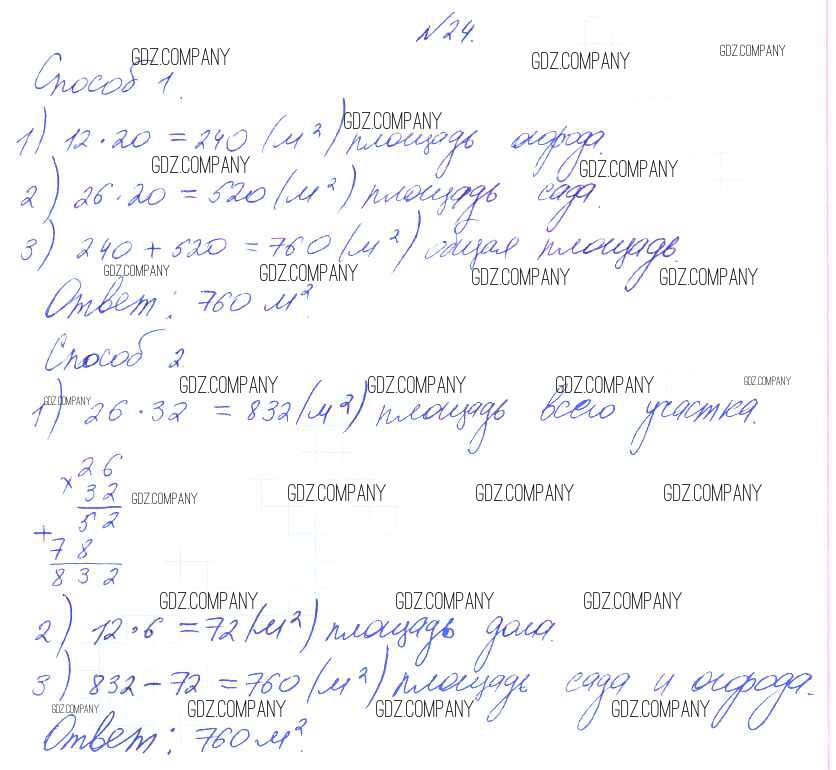 №24.
GDZ.COMPANY GDZ.COMPANY GDZ.COMPANY
Способ 1.
GDZ.COMPANY
1) 12·20 = 240 (м²) площадь огорода.
GDZ.COMPANY GDZ.COMPANY
2) 26·20 = 520 (м²) площадь сада.
3) 240 + 520 = 760 (м²) общая площадь.
GDZ.COMPANY GDZ.COMPANY GDZ.COMPANY GDZ.COMPANY
Ответ: 760 м².
Способ 2.
GDZ.COMPANY GDZ.COMPANY GDZ.COMPANY GDZ.COMPANY GDZ.COMPANY
1) 26·32 = 832 (м²) площадь всего участка.
26
× 32
GDZ.COMPANY GDZ.COMPANY GDZ.COMPANY GDZ.COMPANY
52
+
78
832
GDZ.COMPANY GDZ.COMPANY GDZ.COMPANY
2) 12·6 = 72 (м²) площадь дома.
3) 832 - 72 = 760 (м²) площадь сада и огорода.
GDZ.COMPANY GDZ.COMPANY GDZ.COMPANY GDZ.COMPANY
Ответ: 760 м².